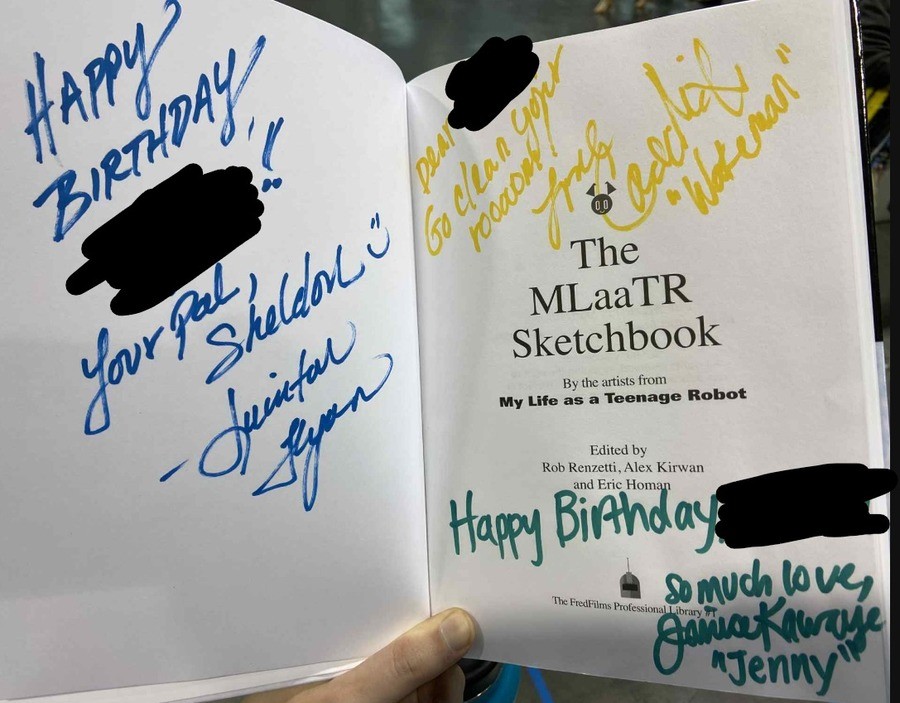 HAPPY
BIRTHDAY,
!!
Your pal,
Sheldon
- Quinton
Flynn
Dear
Go clean yojr
rooooom!
Candi
"Wakeman"
The
MLaaTR
Sketchbook
By the artists from
My Life as a Teenage Robot
Edited by
Rob Renzetti, Alex Kirwan
and Eric Homan
Happy Birthday
so much love,
The FredFilms Professional Library #1
Janice Kawaye
"Jenny"